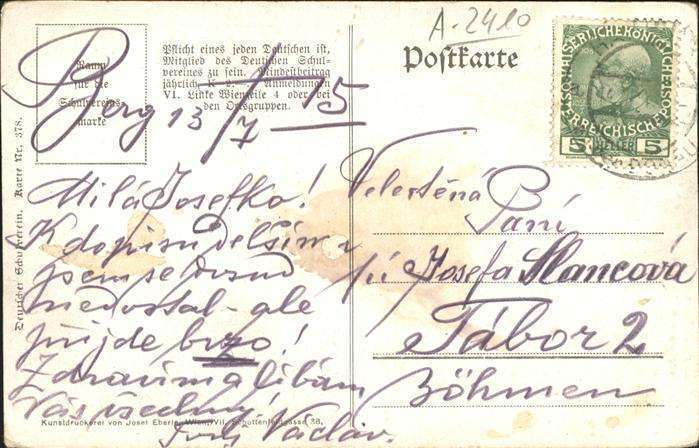 A-2410
Raum
für die
Schulvereins-
marke
Pflicht eines jeden Deutschen ist,
Mitglied des Deutschen Schul-
vereines zu sein. Mindestbeitrag
jährlich K 2.-. Anmeldungen
VI. Linke Wienzeile 4 oder bei
den Ortsgruppen.
Postkarte
5 HELLER 5
Berg 13/7 15
Deutscher Schulverein. Karte Nr. 378.
Milá Josefko!
K dopisu delšímu
jsem se dosud
nedostal - ale
přijde brzo!
Zdraví a líbám
Vás všechny!
Václav.
Velectěná
Paní
pí Josefa Slancová
Tábor 2
Böhmen
Kunstdruckerei von Josef Eberle, Wien, VII. Schottenfeldgasse 38.